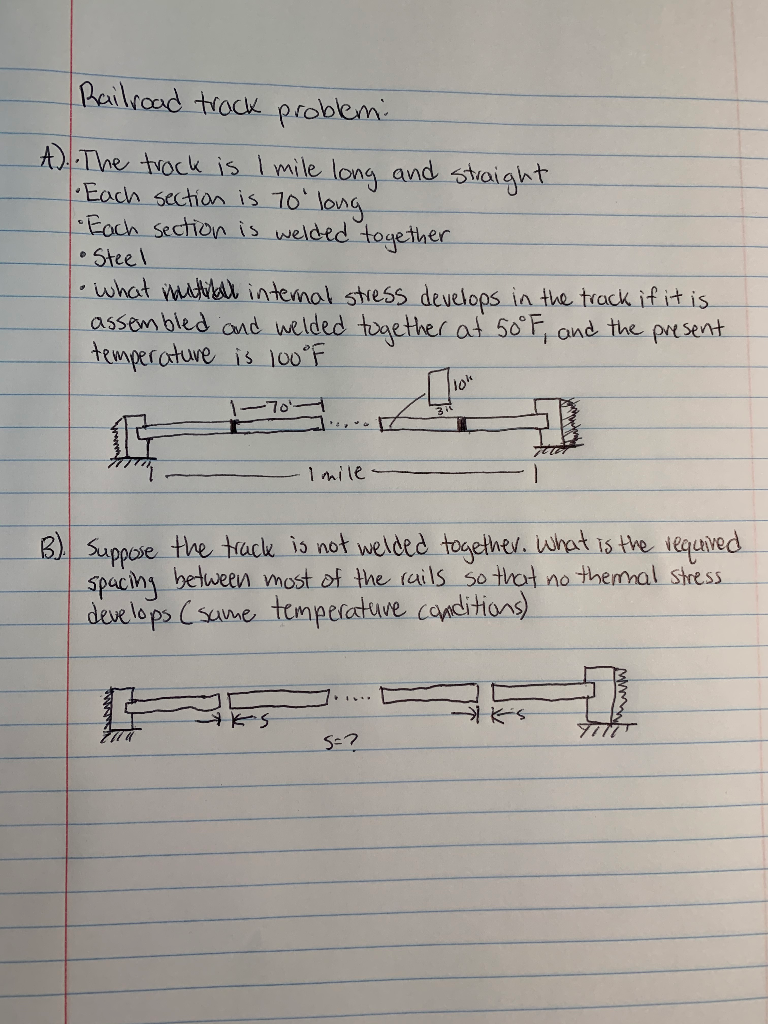 Railroad track problem:
A). • The track is 1 mile long and straight
• Each section is 70' long
• Each section is welded together
• Steel
• what internal stress develops in the track if it is
assembled and welded together at 50°F, and the present
temperature is 100°F
10"
3"
70'
1 mile
B). Suppose the track is not welded together. What is the required
spacing between most of the rails so that no thermal stress
develops (same temperature conditions)
s
s
s=?